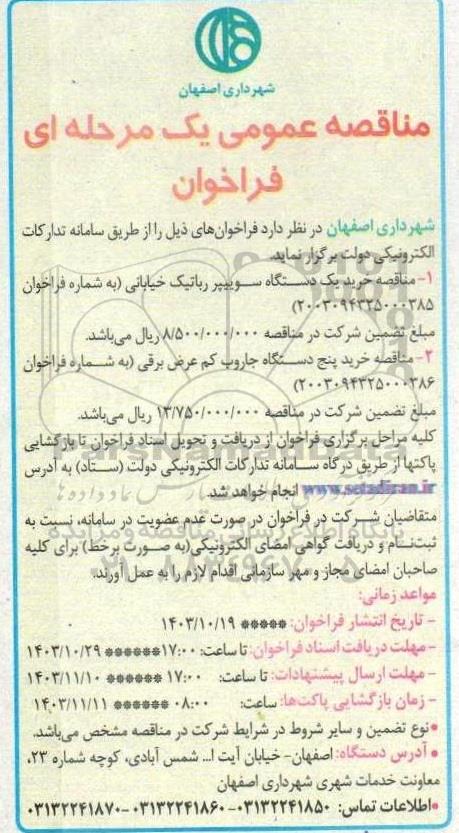 شهرداری اصفهان
مناقصه عمومی یک مرحله ای
فراخوان
شهرداری اصفهان در نظر دارد فراخوان‌های ذیل را از طریق سامانه تدارکات
الکترونیکی دولت برگزار نماید.
۱- مناقصه خرید یک دستگاه سوییپر رباتیک خیابانی (به شماره فراخوان
۲۰۰۳۰۹۴۳۲۵۰۰۰۳۸۵)
مبلغ تضمین شرکت در مناقصه ۸/۵۰۰/۰۰۰/۰۰۰ ریال می‌باشد.
۲- مناقصه خرید پنج دستگاه جاروب کم عرض برقی (به شماره فراخوان
۲۰۰۳۰۹۴۳۲۵۰۰۰۳۸۶)
مبلغ تضمین شرکت در مناقصه ۱۳/۷۵۰/۰۰۰/۰۰۰ ریال می‌باشد.
کلیه مراحل برگزاری فراخوان از دریافت و تحویل اسناد فراخوان تا بازگشایی
پاکتها از طریق درگاه سامانه تدارکات الکترونیکی دولت (ستاد) به آدرس
www.setadiran.ir انجام خواهد شد.
متقاضیان شرکت در فراخوان در صورت عدم عضویت در سامانه، نسبت به
ثبت‌نام و دریافت گواهی امضای الکترونیکی(به صورت برخط) برای کلیه
صاحبان امضای مجاز و مهر سازمانی اقدام لازم را به عمل آورند.
مواعد زمانی:
- تاریخ انتشار فراخوان: ***** ۱۴۰۳/۱۰/۱۹
- مهلت دریافت اسناد فراخوان: تا ساعت: ۱۷:۰۰ ****** ۱۴۰۳/۱۰/۲۹
- مهلت ارسال پیشنهادات: تا ساعت: ۱۷:۰۰ ****** ۱۴۰۳/۱۱/۱۰
- زمان بازگشایی پاکت‌ها: ساعت: ۰۸:۰۰ ****** ۱۴۰۳/۱۱/۱۱
•نوع تضمین و سایر شروط در شرایط شرکت در مناقصه مشخص می‌باشد.
• آدرس دستگاه: اصفهان- خیابان آیت ا... شمس آبادی، کوچه شماره ۲۳،
معاونت خدمات شهری شهرداری اصفهان
•اطلاعات تماس: ۰۳۱۳۲۲۴۱۸۵۰- ۰۳۱۳۲۲۴۱۸۶۰ -۰۳۱۳۲۲۴۱۸۷۰